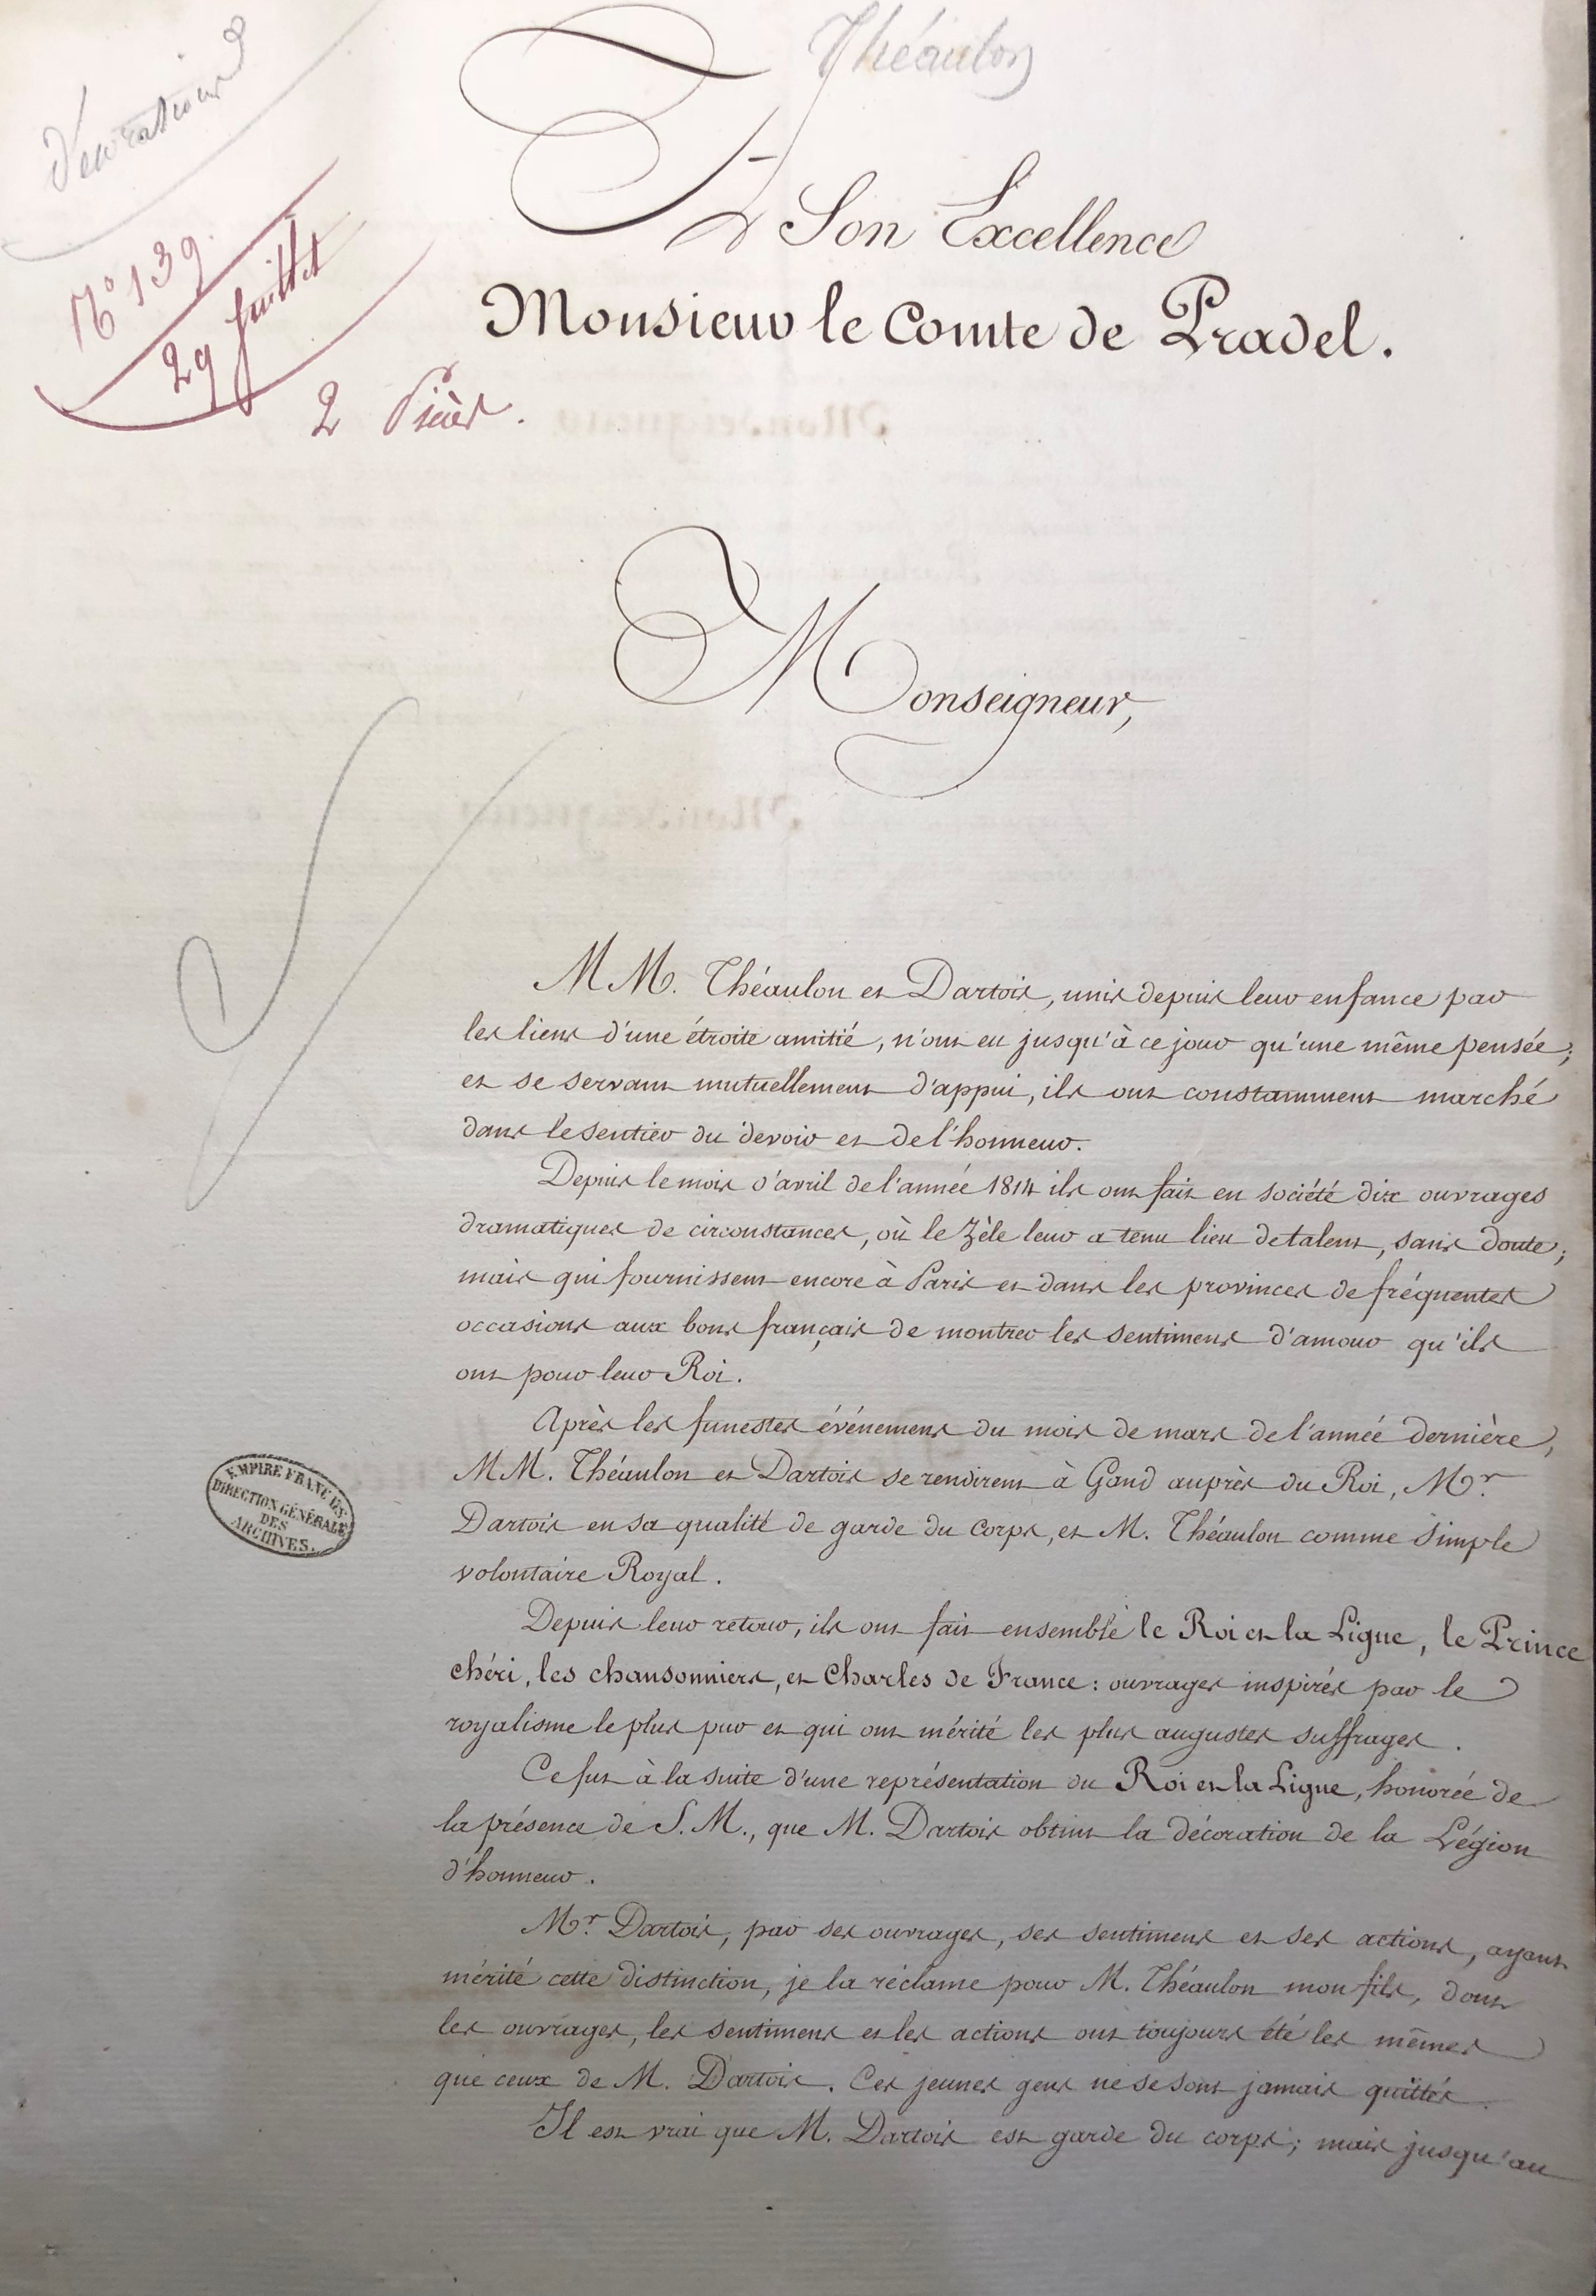 Théaulon
Décorations
N° 139.
29 Juillet
2 Pièces.
A Son Excellence
Monsieur le Comte de Pradel.
Monseigneur,
MM. Théaulon et Dartois, unis depuis leur enfance par
les liens d'une étroite amitié, n'ont eu jusqu'à ce jour qu'une même pensée;
et se servant mutuellement d'appui, ils ont constamment marché
dans le sentier du devoir et de l'honneur.
Depuis le mois d'avril de l'année 1814 ils ont fait en société dix ouvrages
dramatiques de circonstances, où le zèle leur a tenu lieu de talent, sans doute;
mais qui fournissent encore à Paris et dans les provinces de fréquentes
occasions aux bons français de montrer les sentimens d'amour qu'ils
ont pour leur Roi.
Après les funestes événemens du mois de mars de l'année dernière,
MM. Théaulon et Dartois se rendirent à Gand auprès du Roi, Mr.
Dartois en sa qualité de garde du corps, et M. Théaulon comme simple
volontaire Royal.
Depuis leur retour, ils ont fait ensemble le Roi et la Ligue, le Prince
chéri, les chansonniers, et Charles de France: ouvrages inspirés par le
royalisme le plus pur et qui ont mérité les plus augustes suffrages.
Ce fut à la suite d'une représentation du Roi et la Ligue, honorée de
la présence de S. M., que M. Dartois obtint la décoration de la Légion
d'honneur.
Mr. Dartois, par ses ouvrages, ses sentimens et ses actions, ayant
mérité cette distinction, je la réclame pour M. Théaulon mon fils, dont
les ouvrages, les sentimens et les actions ont toujours été les mêmes
que ceux de M. Dartois. Ces jeunes gens ne se sont jamais quittés.
Il est vrai que M. Dartois est garde du corps; mais jusqu'au
EMPIRE FRANÇAIS
DIRECTION GÉNÉRALE
DES
ARCHIVES.